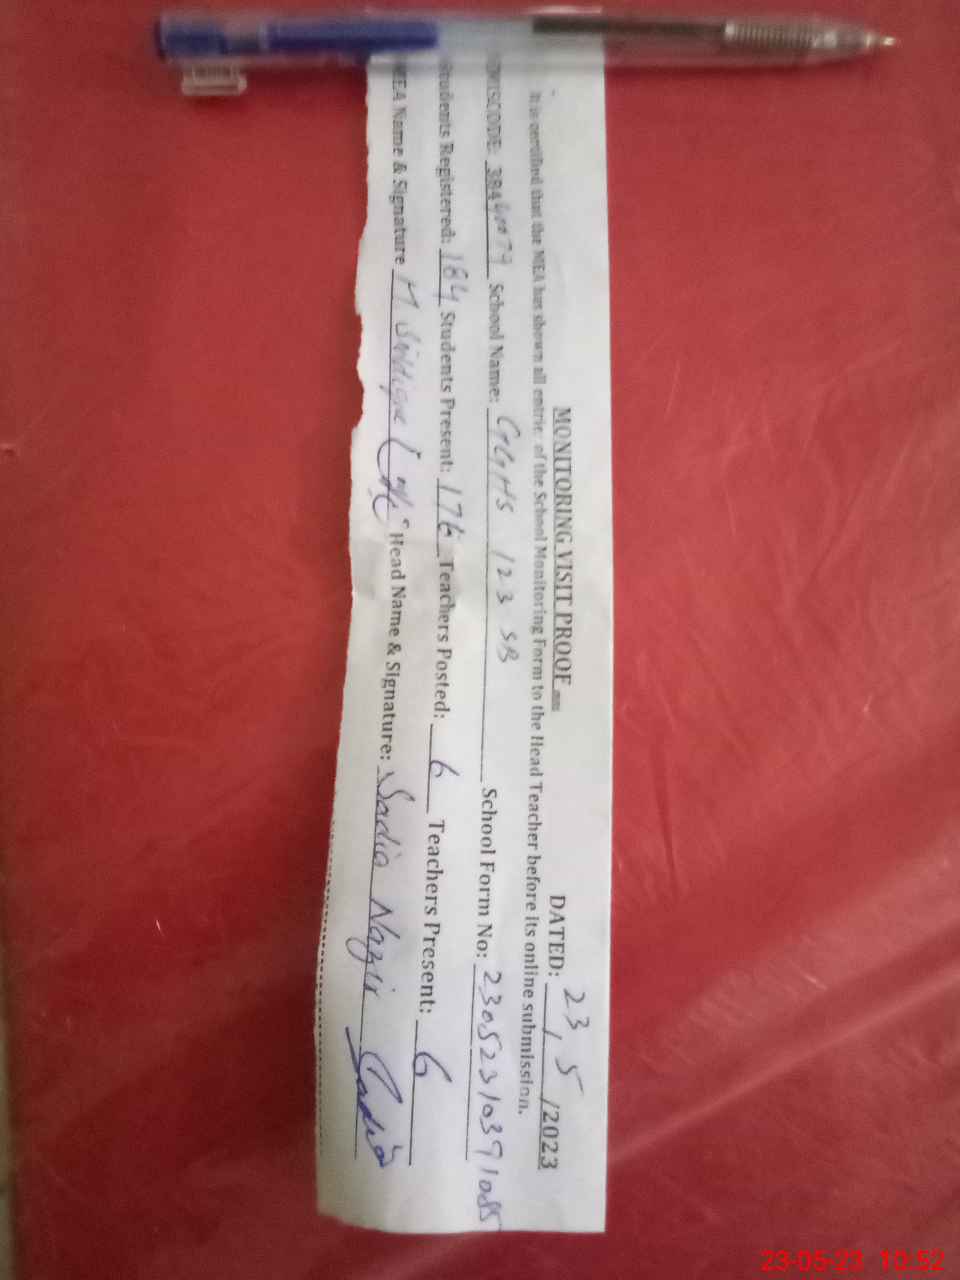 MONITORING VISIT PROOF DATED: 23/5/2023
It is certified that the MEA has shown all entries of the School Monitoring Form to the Head Teacher before its online submission.
School Name: GGHS 123 SB School Form No:
Students Registered: 184 Students Present: 176 Teachers Posted: 6 Teachers Present: 6
MEA Name & Signature M Siddique Head Name & Signature: Sadia Nazir Sadia
23-05-23 10:52